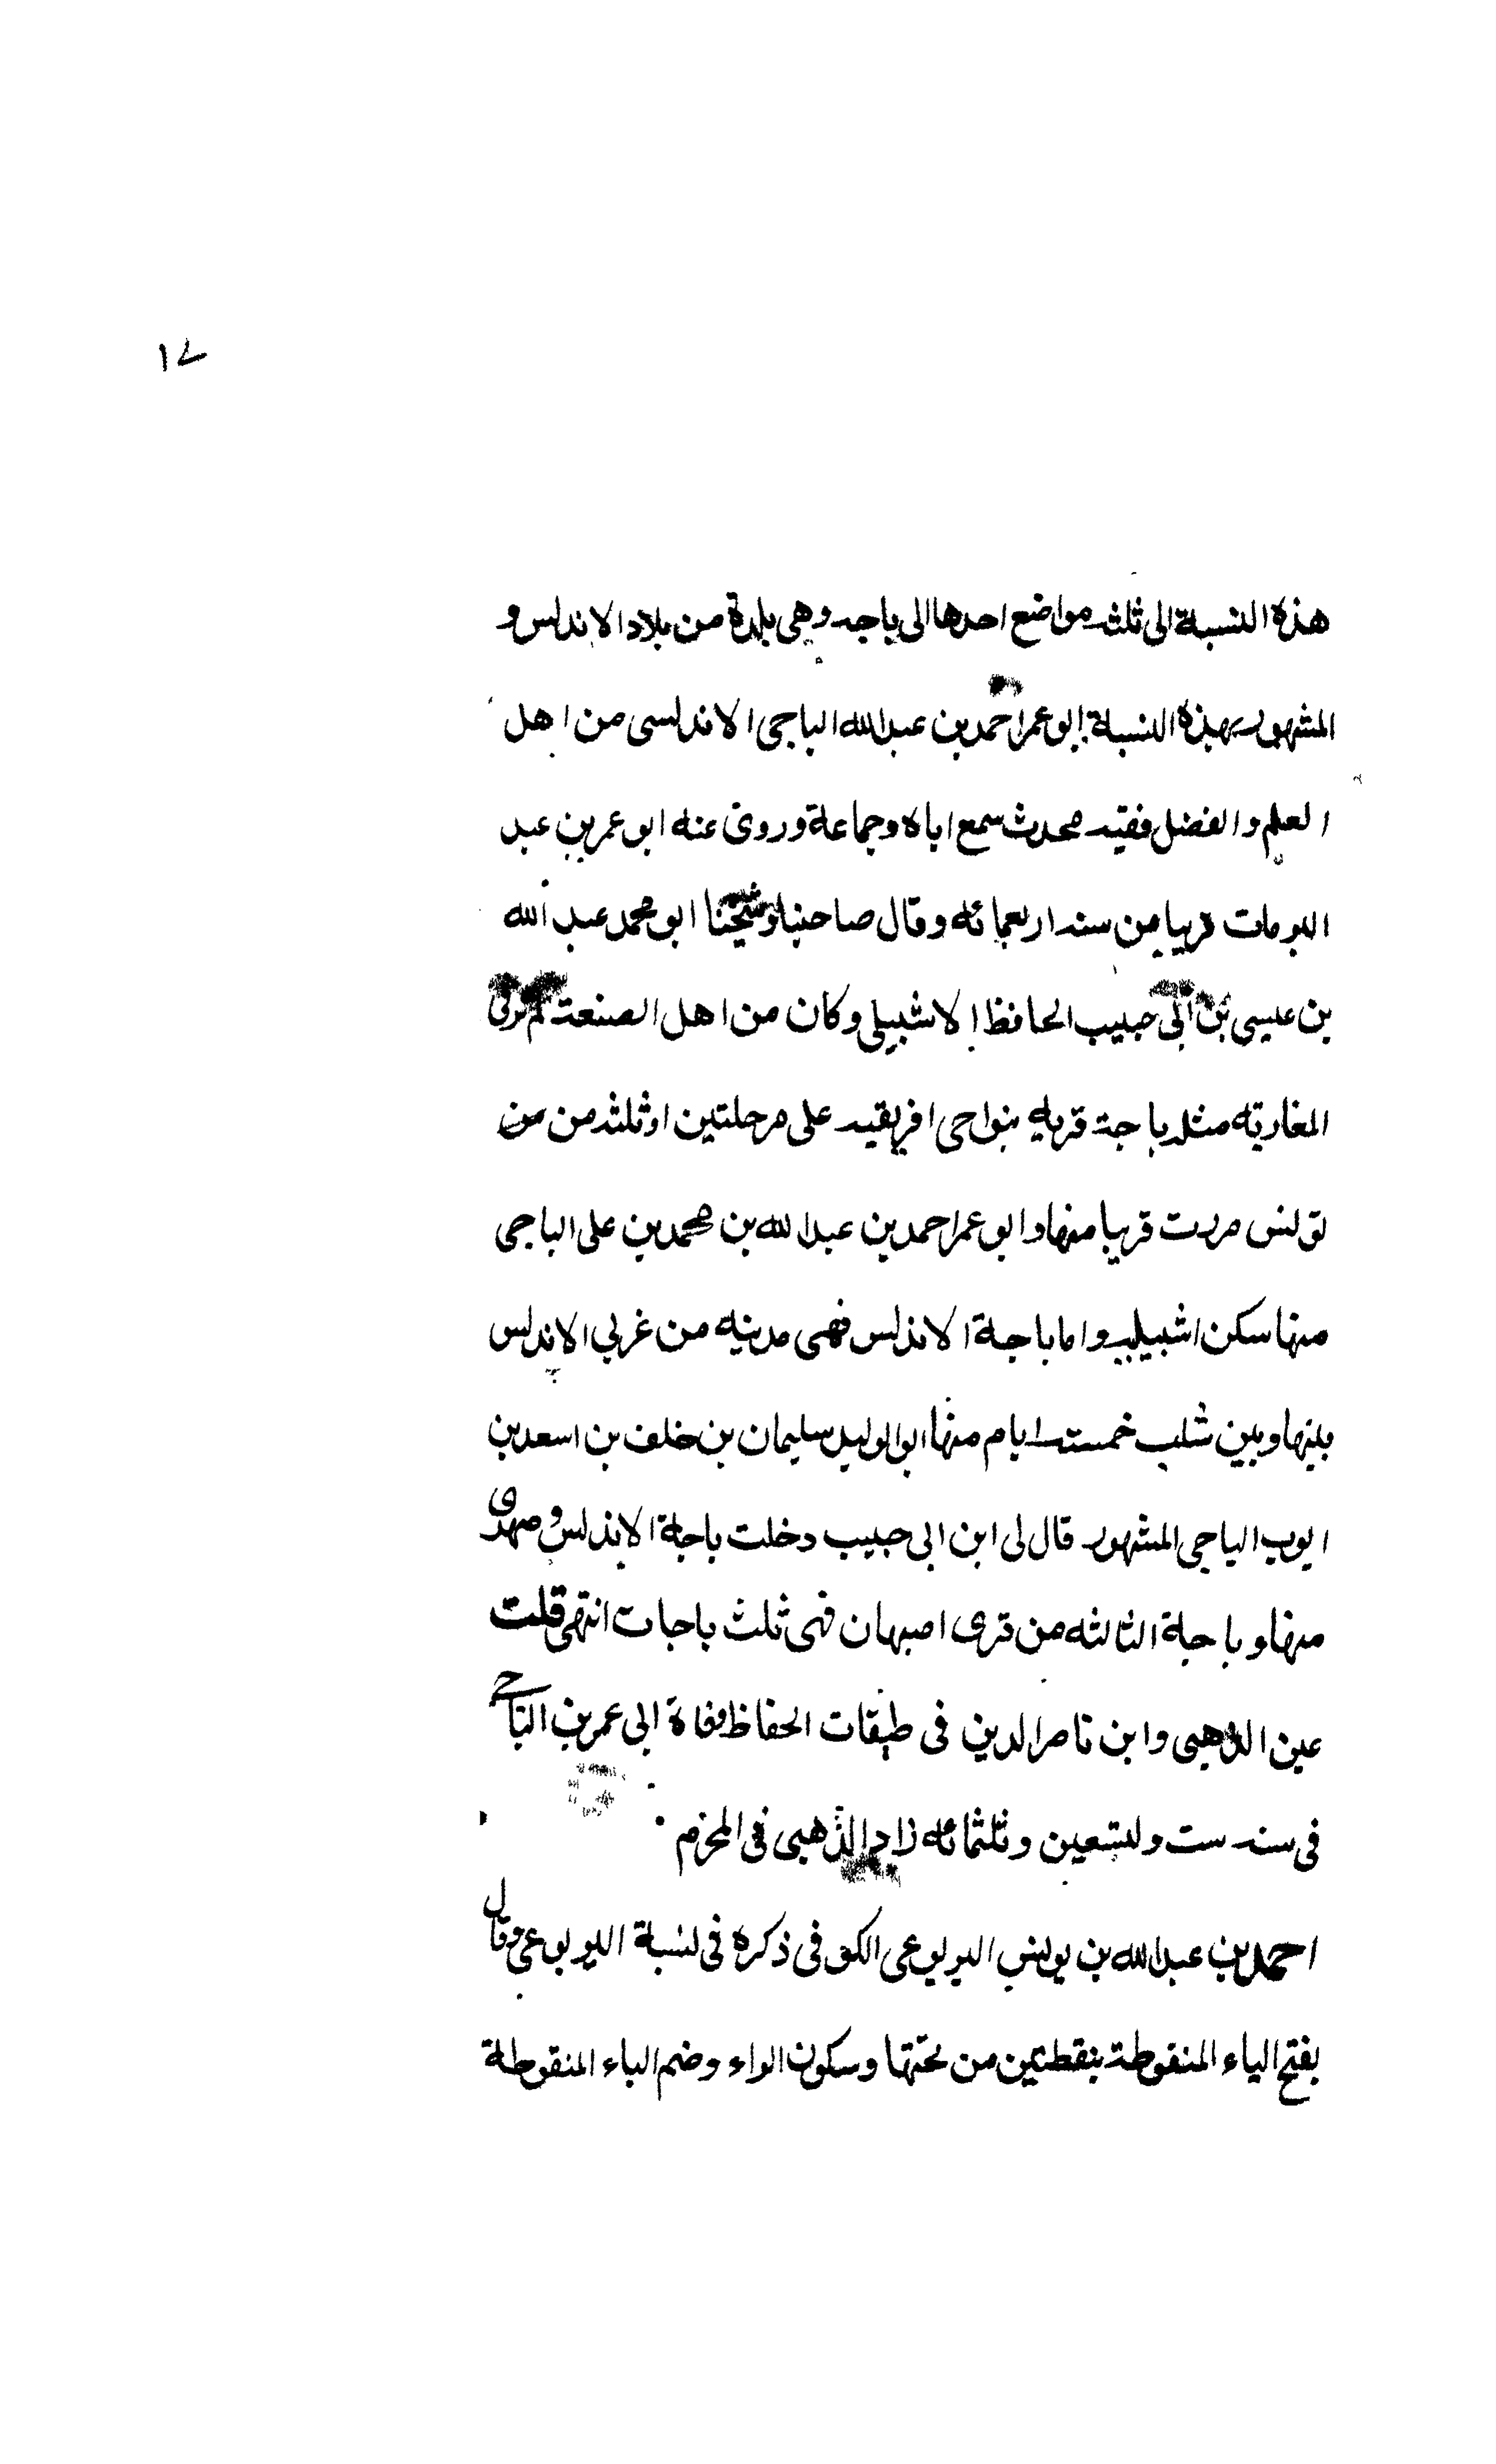 ١٧
هذه النسبة الى ثلثه مواضع احدها الى باجه وهي بلدة من بلاد الاندلس و
المشهور بهذه النسبة ابو عمر احمد بن عبد الله الباجي الاندلسي من اهل
العلم والفضل فقيه محدث سمع اباه وجماعة وروى عنه ابو عمر بن عبد
البر مات قريبا من سنه اربعمائه وقال صاحبنا وشيخنا ابو محمد عبد الله
بن عيسى بن ابي حبيب الحافظ الاشبيلي وكان من اهل الصنعة لم تر في
المغاربه مثله باجة قريه بنواحى افريقيه على مرحلتين او ثلثه من من
تونس مررت قريبا منها وابو عمر احمد بن عبد الله بن محمد بن على الباجي
منها سكن اشبيليه واما باجة الاندلس فهي مدينه من غربي الاندلس
بينها وبين شلب خمسته ايام منها ابو الوليد سليمان بن خلف بن اسعد بن
ايوب الباجي المشهور قال لى ابن ابى حبيب دخلت باجة الاندلس و صهرى
منها و باجة الثالثه من قرى اصبهان فهى ثلث باجات انتهى قلت
عين الذهبي وابن ناصر الدين فى طبقات الحفاظ وفاة ابى عمر بن الباجي
فى سنه ست وتسعين وثلثمائه زاد الذهبي في المحرم
احمد بن عبد الله بن يونس اليربوعى الكوفى ذكره فى نسبة اليربوعي وقال
بفتح الياء المنقوطة بنقطتين من تحتها وسكون الراء وضم الباء المنقوطة